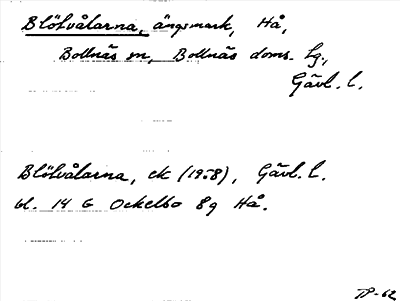 Blötvålarna, ängsmark, Hå,
Bollnäs sn, Bollnäs doms. lg.,
Gävl. l.
Blötvålarna, ek (1958), Gävl. l.
bl. 14 G Ockelbo 8g Hå.
TP-62